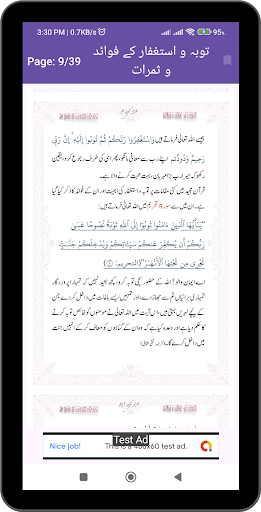 3:30 PM | 0.7KB/s
Page: 9/39
توبہ و استغفار کے فوائد
و ثمرات
9 of 39
جیسے اللہ تعالیٰ فرماتے ہیں وَاسْتَغْفِرُوا رَبَّكُمْ ثُمَّ تُوبُوا إِلَيْهِ ۚ إِنَّ رَبِّي
رَحِيمٌ وَدُودٌ تم اپنے رب سے معافی مانگو، پھر اسی کی طرف رجوع کرو، یقین
رکھو کہ میرا رب بڑا مہربان، بہت محبت کرنے والا ہے۔
قرآن مجید میں کئی مقامات پر توبہ و استغفار کی اہمیت اور ان کے فوائد کا ذکر کیا گیا
ہے۔ ان میں سے سورۃ تحریم میں اللہ تعالیٰ فرماتے ہیں:
"يَٰٓأَيُّهَا ٱلَّذِينَ ءَامَنُوا۟ تُوبُوٓا۟ إِلَى ٱللَّهِ تَوْبَةً نَّصُوحًا عَسَىٰ
رَبُّكُمْ أَن يُكَفِّرَ عَنكُمْ سَيِّـَٔاتِكُمْ وَيُدْخِلَكُمْ جَنَّٰتٍ
تَجْرِى مِن تَحْتِهَا ٱلْأَنْهَٰرُ" (التحریم:
اے ایمان والو! اللہ کے حضور سچی توبہ کرو، کچھ بعید نہیں کہ تمہارا پروردگار
تمہاری برائیاں تم سے جھاڑ دے، اور تمہیں ایسے باغات میں داخل کر دے جن
کے نیچے نہریں بہتی ہیں، اس آیت میں اللہ تعالیٰ نے مومنوں کو خالص توبہ کرنے
کا حکم دیا ہے اور وعدہ کیا ہے کہ وہ ان کے گناہوں کو معاف کر کے انہیں جنت
میں داخل کرے گا۔
10 of 39
Test Ad
Nice job!
This is a 468x60 test ad.